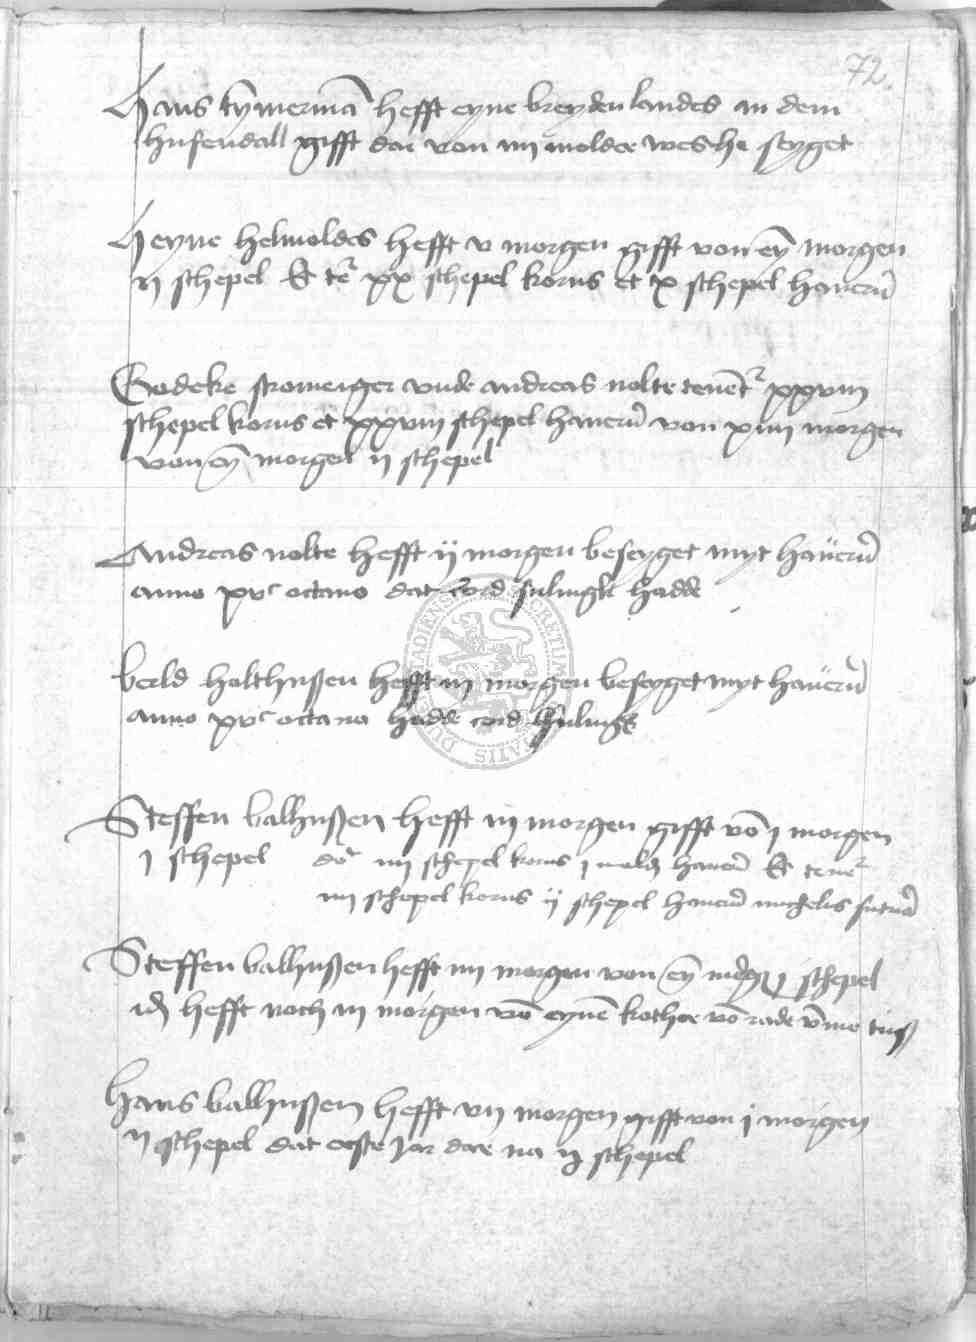 72
Hans tymerma hefft eyne breyden landes in dem
husendall gifft dar von iiij molder wes he seyget
Heyne helmoldes hefft v morgen gifft von ey morgen
ij schepel Et te xx schepel korns et x schepel haueru
Godeke stromeiger vnde andreas nolte tenet xxviij
schepel korns et xxviij schepel haueru von xiiij morgen
von ey morgen ij schepel
Andreas nolte hefft ij morgen beseyget myt haueru
anno xvc octauo dat cord hadde
berld holthußen hefft iij morgen beseyget myt haueru
anno xvc octauo hadde cord
Steffen balhußen hefft iij morgen gifft vo j morgen
j schepel iiij schepel korns j haueru Et tene
iiij schepel korns ij schepel haueru michelis
Steffen balhußen hefft iiij morgen von ey schepel
hefft noch iij morgen vo eyne kothoe vo rade
hans balhußen hefft vij morgen gifft von j morgen
ij schepel dat erste jar dar na schepel